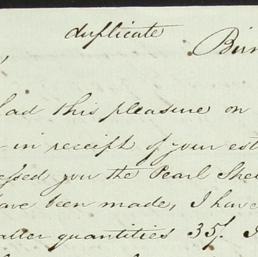 duplicate
Birm
had this pleasure on
in receipt of your est
essed you the Pearl She
have been made, I have
aller quantities 35/.